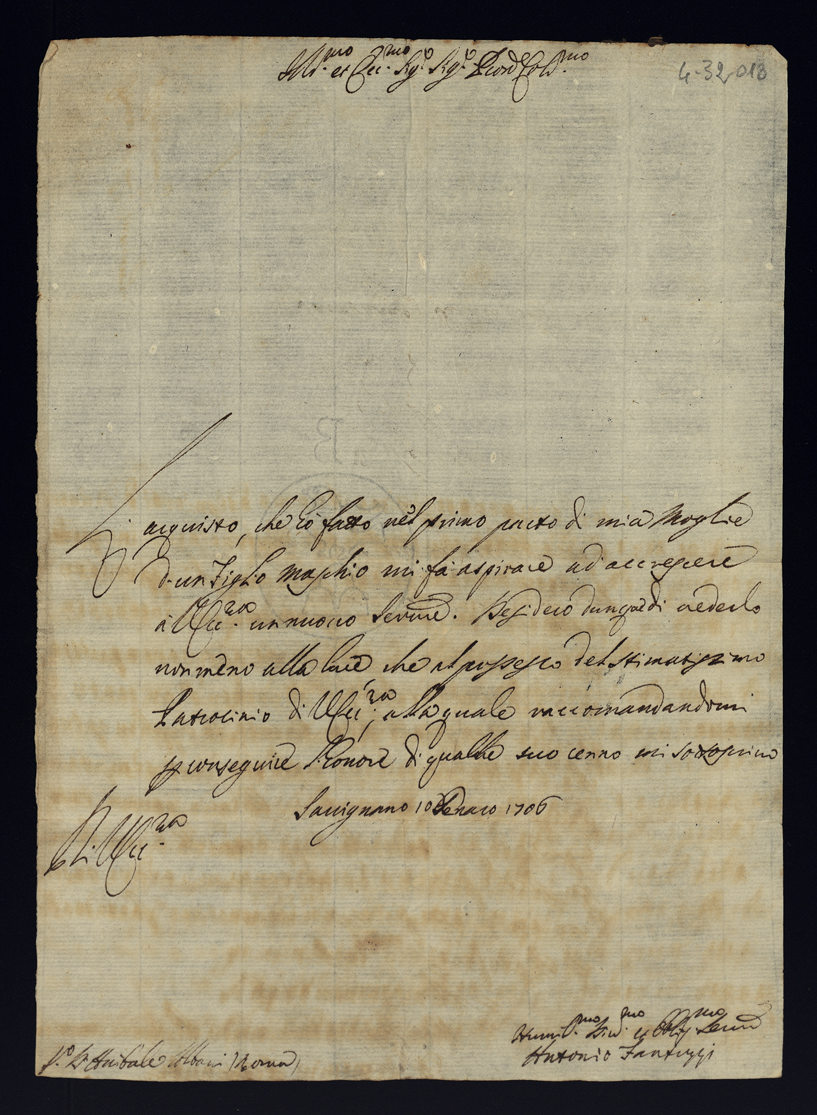 Ill.mo et Ecc.mo Sig.r Sig.r P.ron Col.mo
4-32-013
L'acquisto, che hò fatto nel primo parto di mia Moglie
d'un Figlio Maschio mi fà aspirare ad accrescere
à V. Ecc.za un nuovo Servire. Desidero dunque di vederlo
non meno alla luce che al possesso del stimatissimo
Patrocinio di V. Ecc.za, alla quale raccomandandomi
p conseguire l'honore di qualche suo cenno mi sottoscrivo
Savignano 10 Genaro 1706
Di V. Ecc.za
Humil.mo Div.mo et Obblig.mo Serv.re
Antonio Fantuzzi
S.r D. Anibale Albani (Roma)